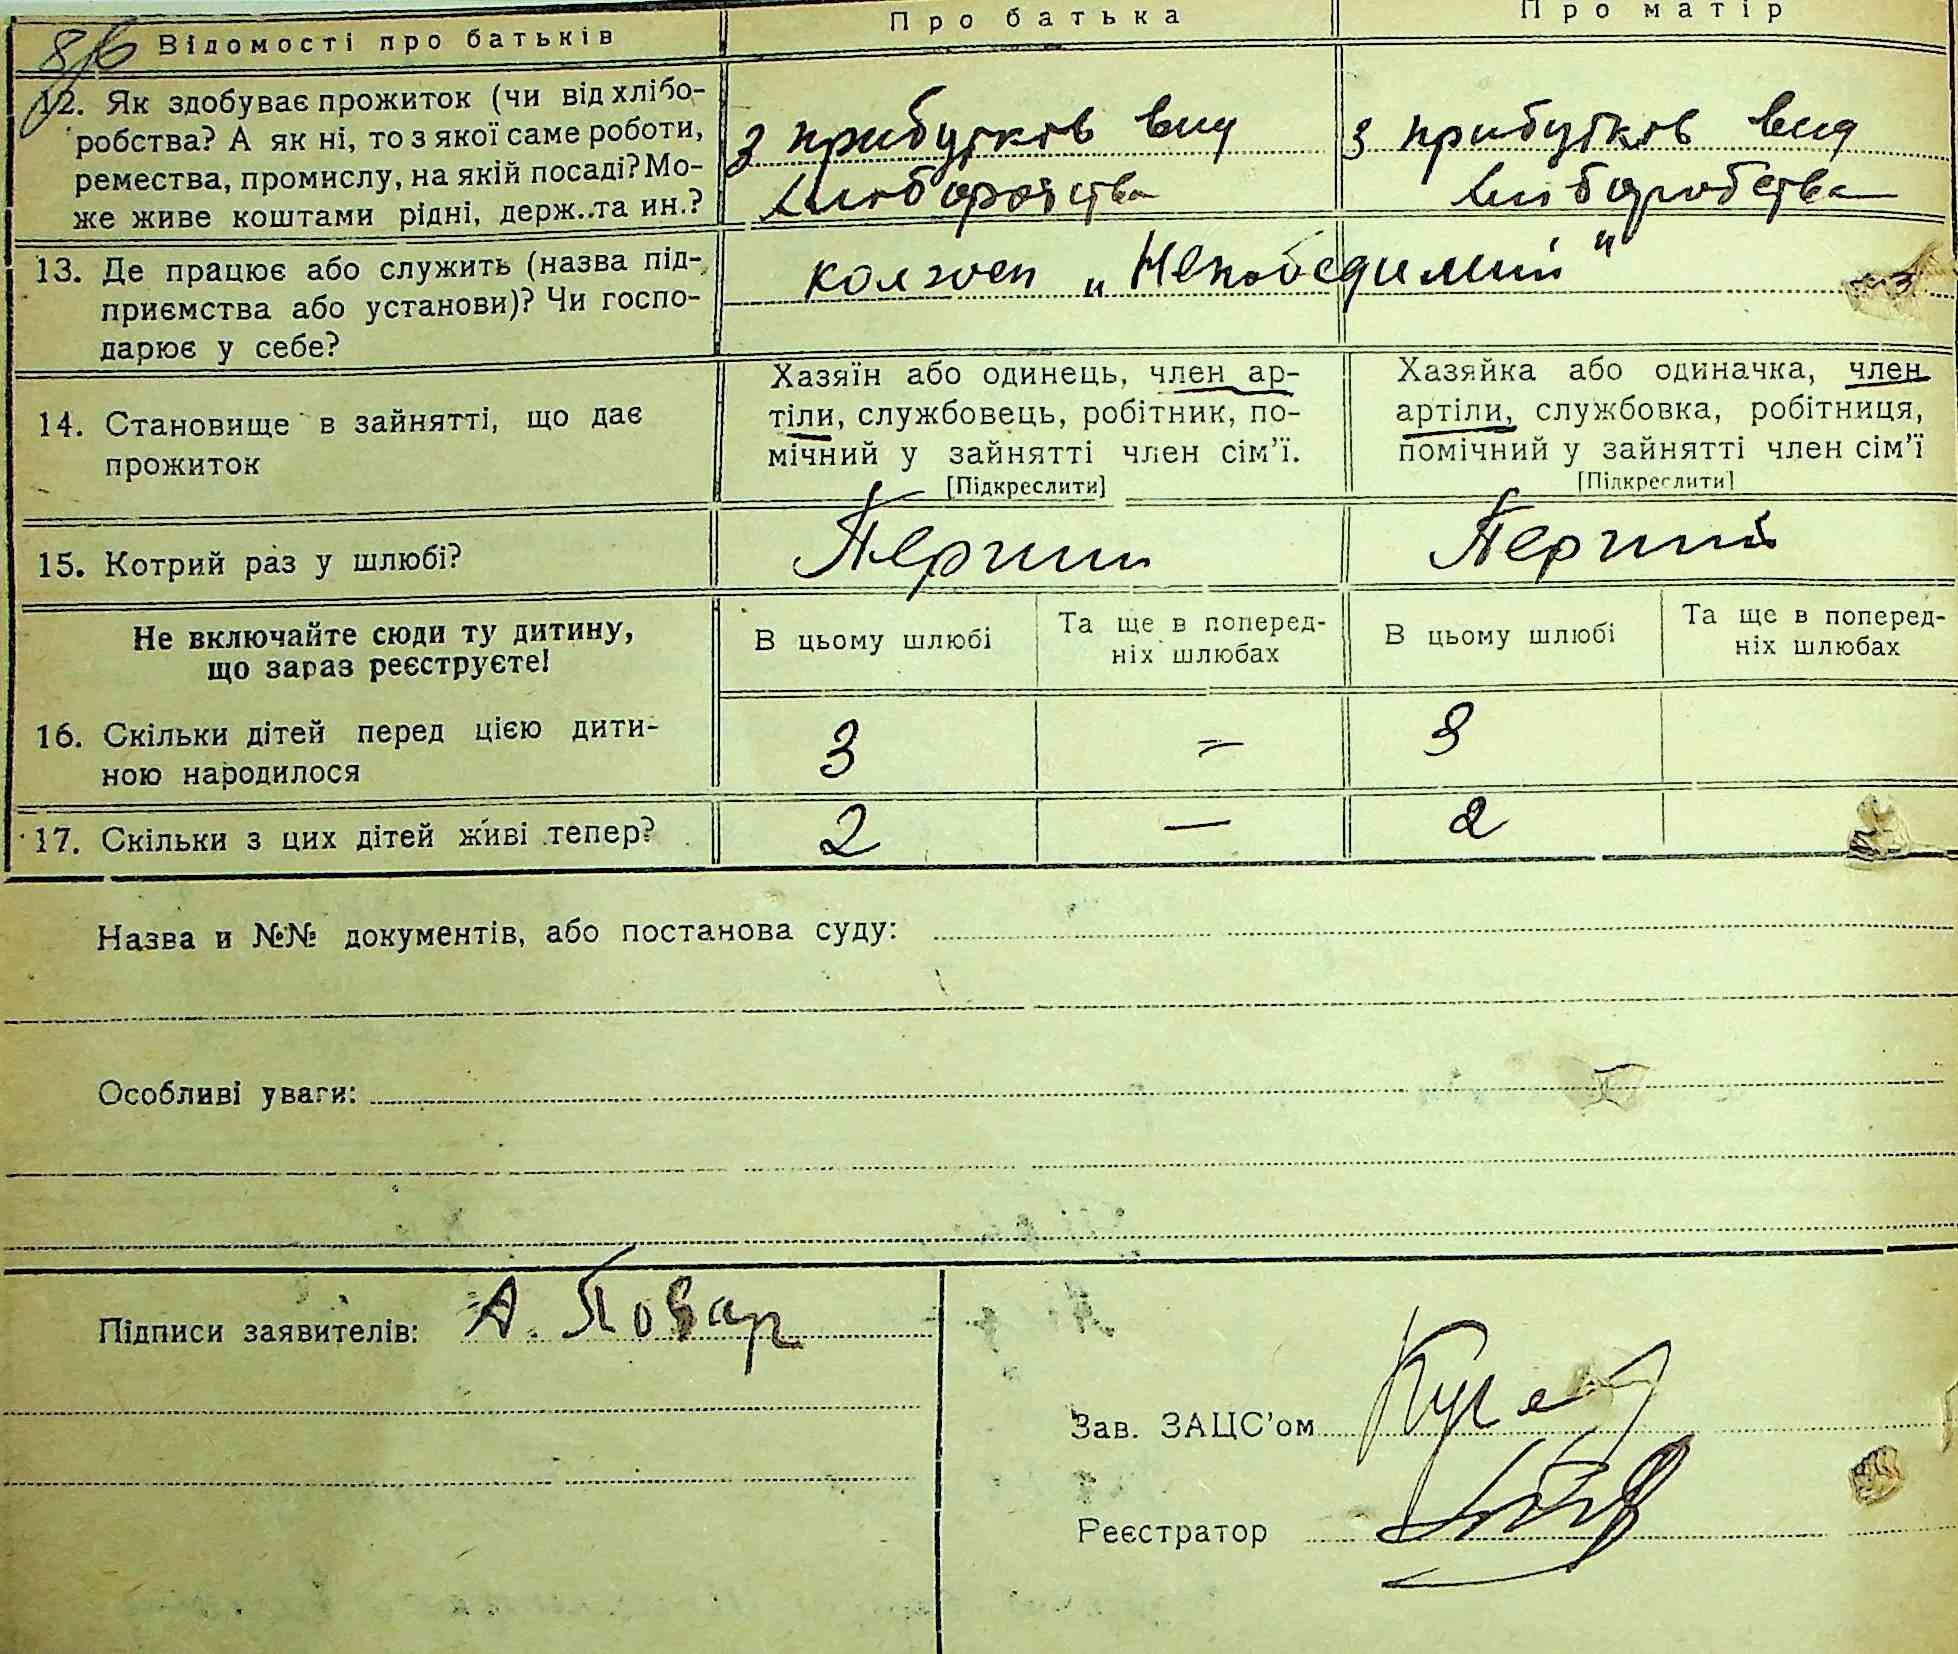 8/6 Відомості про батьків
Про батька
Про матір
12. Як здобуває прожиток (чи від хлібо-
робства? А як ні, то з якої саме роботи,
ремества, промислу, на якій посаді? Мо-
же живе коштами рідні, держ..та ин.?
з прибутків вид
хлиборобства
з прибутків вид
хлиборобства
13. Де працює або служить (назва під-
приємства або установи)? Чи госпо-
дарює у себе?
колгосп „Непобедимий"
14. Становище в зайнятті, що дає
прожиток
Хазяїн або одинець, член ар-
тіли, службовець, робітник, по-
мічний у зайнятті член сім'ї.
[Підкреслити]
Хазяйка або одиначка, член
артіли, службовка, робітниця,
помічний у зайнятті член сім'ї
[Підкреслити]
15. Котрий раз у шлюбі?
Перший
Перший
Не включайте сюди ту дитину,
що зараз реєструєте!
В цьому шлюбі
Та ще в поперед-
ніх шлюбах
В цьому шлюбі
Та ще в поперед-
ніх шлюбах
16. Скільки дітей перед цією дити-
ною народилося
3 = 3
17. Скільки з цих дітей живі тепер? 2 — 2
Назва и №№ документів, або постанова суду:
Особливі уваги:
Підписи заявителів: А. Повар
Зав. ЗАЦС'ом
Реєстратор